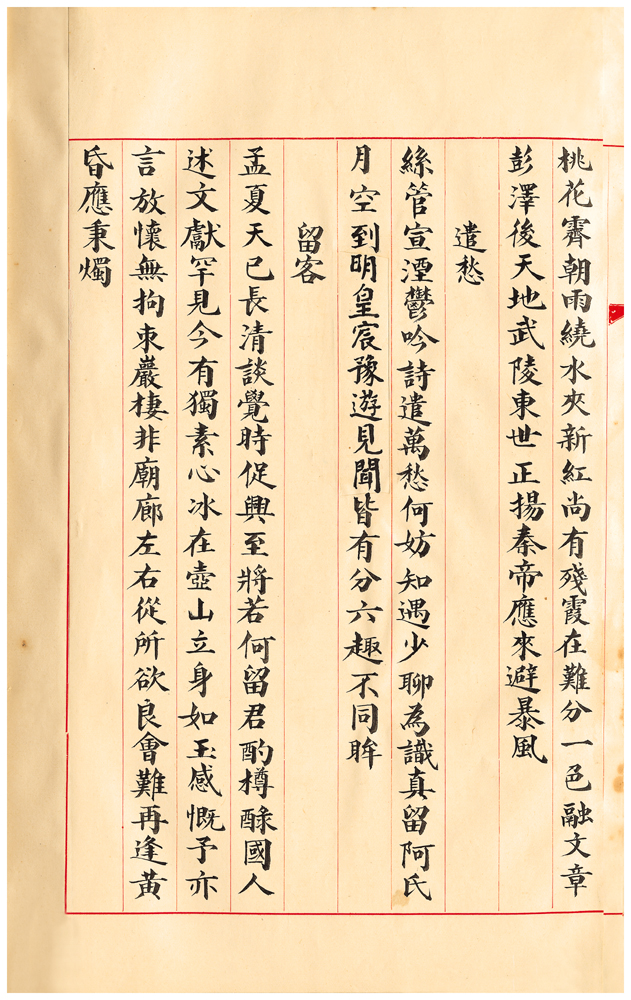 桃花霽朝雨繞水夾新紅尚有殘霞在難分一色融文章
彭澤後天地武陵東世正揚秦帝應來避暴風
遣愁
絲管宣湮鬱吟詩遣萬愁何妨知遇少聊為識真留阿氏
月空到明皇宸豫遊見聞皆有分六趣不同眸
留客
孟夏天已長清談覺時促興至將若何留君酌樽醁國人
述文獻罕見今有獨素心冰在壺山立身如玉感慨予亦
言放懷無拘束巖棲非廟廊左右從所欲良會難再逢黃
昏應秉燭